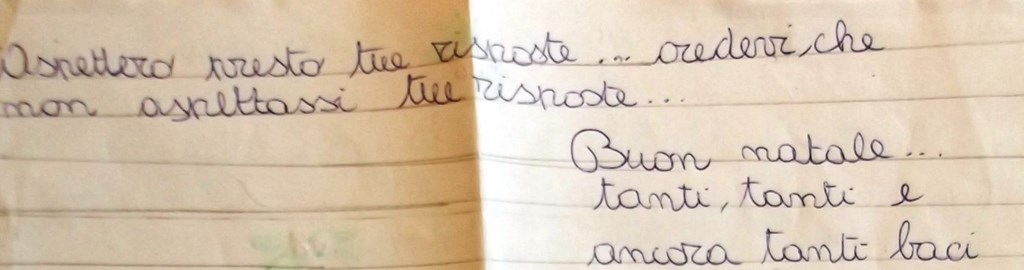 Aspetterò presto tue risposte... credevi, che
non aspettassi tue risposte...
Buon natale...
tanti, tanti e
ancora tanti baci